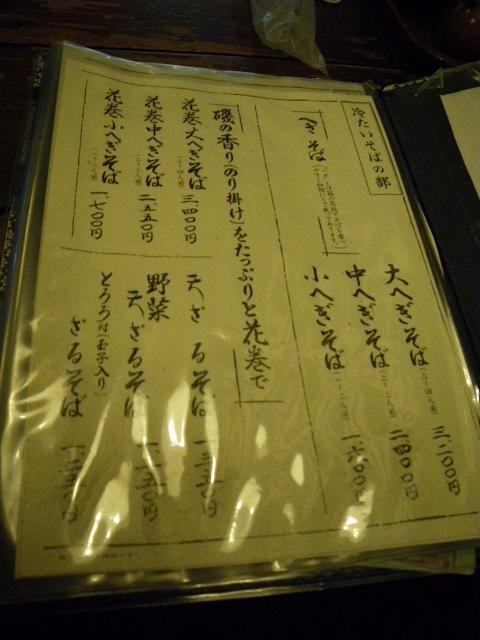 冷たいそばの部
へぎそば
大へぎそば（三〜四人前） 三、二〇〇円
中へぎそば（二〜三人前） 二、四〇〇円
小へぎそば（一〜二人前） 一、六〇〇円
磯の香り（のり掛け）をたっぷりと花巻で
花巻大へぎそば（三〜四人前） 三、四〇〇円
花巻中へぎそば（二〜三人前） 二、五五〇円
花巻小へぎそば（一〜二人前） 一、七〇〇円
天ざるそば
野菜天ざるそば
とろろ付（玉子入り）ざるそば